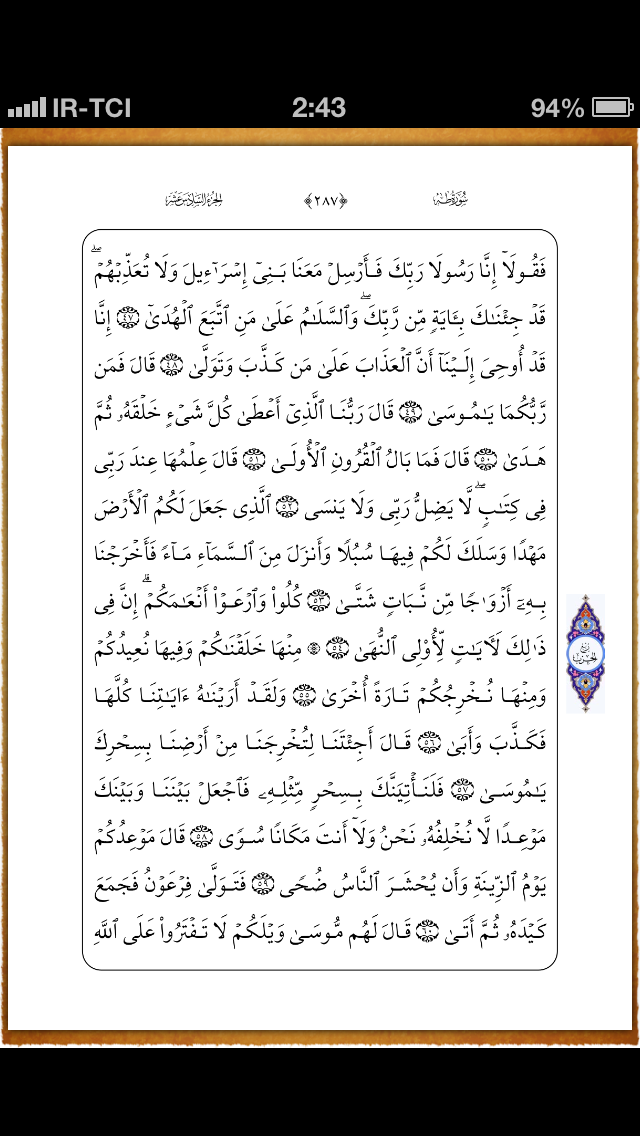 IR-TCI 2:43 94%
سُورَةُ طٰهٰ ﴿٢٨٧﴾ الجُزءُ السَّادِسَ عَشَرَ
فَقُولَآ إِنَّا رَسُولَا رَبِّكَ فَأَرۡسِلۡ مَعَنَا بَنِيٓ إِسۡرَـٰٓءِيلَ وَلَا تُعَذِّبۡهُمۡۖ
قَدۡ جِئۡنَـٰكَ بِـَٔايَةٖ مِّن رَّبِّكَۖ وَٱلسَّلَـٰمُ عَلَىٰ مَنِ ٱتَّبَعَ ٱلۡهُدَىٰٓ ٤٧ إِنَّا
قَدۡ أُوحِيَ إِلَيۡنَآ أَنَّ ٱلۡعَذَابَ عَلَىٰ مَن كَذَّبَ وَتَوَلَّىٰ ٤٨ قَالَ فَمَن
رَّبُّكُمَا يَـٰمُوسَىٰ ٤٩ قَالَ رَبُّنَا ٱلَّذِيٓ أَعۡطَىٰ كُلَّ شَيۡءٍ خَلۡقَهُۥ ثُمَّ
هَدَىٰ ٥٠ قَالَ فَمَا بَالُ ٱلۡقُرُونِ ٱلۡأُولَىٰ ٥١ قَالَ عِلۡمُهَا عِندَ رَبِّي
فِي كِتَـٰبٖۖ لَّا يَضِلُّ رَبِّي وَلَا يَنسَى ٥٢ ٱلَّذِي جَعَلَ لَكُمُ ٱلۡأَرۡضَ
مَهۡدٗا وَسَلَكَ لَكُمۡ فِيهَا سُبُلٗا وَأَنزَلَ مِنَ ٱلسَّمَآءِ مَآءٗ فَأَخۡرَجۡنَا
بِهِۦٓ أَزۡوَٰجٗا مِّن نَّبَاتٖ شَتَّىٰ ٥٣ كُلُواْ وَٱرۡعَوۡاْ أَنۡعَـٰمَكُمۡۚ إِنَّ فِي
ذَٰلِكَ لَأٓيَـٰتٖ لِّأُوْلِي ٱلنُّهَىٰ ٥٤ ۞ مِنۡهَا خَلَقۡنَـٰكُمۡ وَفِيهَا نُعِيدُكُمۡ
وَمِنۡهَا نُخۡرِجُكُمۡ تَارَةً أُخۡرَىٰ ٥٥ وَلَقَدۡ أَرَيۡنَـٰهُ ءَايَـٰتِنَا كُلَّهَا
فَكَذَّبَ وَأَبَىٰ ٥٦ قَالَ أَجِئۡتَنَا لِتُخۡرِجَنَا مِنۡ أَرۡضِنَا بِسِحۡرِكَ
يَـٰمُوسَىٰ ٥٧ فَلَنَأۡتِيَنَّكَ بِسِحۡرٖ مِّثۡلِهِۦ فَٱجۡعَلۡ بَيۡنَنَا وَبَيۡنَكَ
مَوۡعِدٗا لَّا نُخۡلِفُهُۥ نَحۡنُ وَلَآ أَنتَ مَكَانٗا سُوٗى ٥٨ قَالَ مَوۡعِدُكُمۡ
يَوۡمُ ٱلزِّينَةِ وَأَن يُحۡشَرَ ٱلنَّاسُ ضُحٗى ٥٩ فَتَوَلَّىٰ فِرۡعَوۡنُ فَجَمَعَ
كَيۡدَهُۥ ثُمَّ أَتَىٰ ٦٠ قَالَ لَهُم مُّوسَىٰ وَيۡلَكُمۡ لَا تَفۡتَرُواْ عَلَى ٱللَّهِ